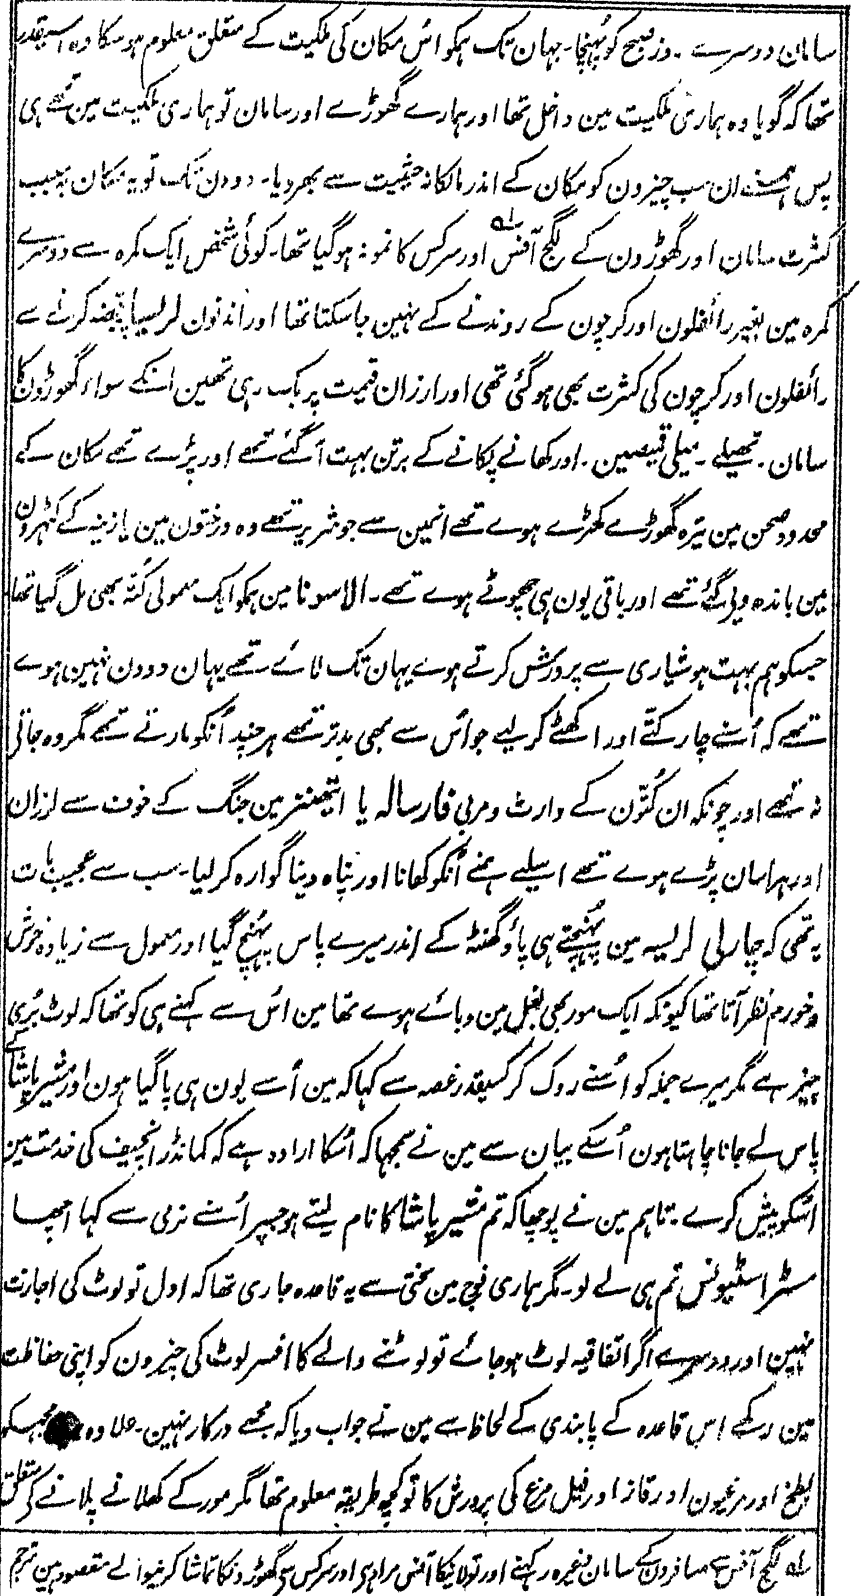 سامان دوسرے ۔ وز صبح کو پُہنچا۔ جہان تک ہمکو اس مکان کی ملکیت کے متعلق معلوم ہو سکا وہ اسیقدر
تھا کہ گویا وہ ہماری ملکیت مین داخل تھا اور ہمارے گھوڑے اور سامان تو ہماری ملکیت مین تھے ہی
پس ہمنے ان سب چیزون کو مکان کے اندر مالکانہ حیثیت سے بھر دیا۔ دو دن تک تو یہ مکان بہ سبب
کثرت سامان اور گھوڑون کے لگج آفس لہ اور سرکس کا نمونہ ہو گیا تھا۔ کوئی شخص ایک کمرہ سے دوسرے
کمرہ مین بغیر رائفلون اور کرچون کے روندنے کے نہین جا سکتا تھا اور اُندنون لرلسیا پر قبضہ کرنے سے
رائفلون اور کرچون کی کثرت بھی ہو گئی تھی اور ارزان قیمت پر بک رہی تھین انکے سواء گھوڑون کا
سامان ۔ تھیلے ۔ میلی قمیصین ۔ اور کھانے پکانے کے برتن بہت آ گئے تھے اور پڑے تھے مکان کے
محدود صحن مین تیرہ گھوڑے کھڑے ہوے تھے انمین سے جو شریر تھے وہ درختون مین یا زینہ کے کٹہرون
مین باندھ دیے گئے تھے اور باقی یون ہی چھوٹے ہوے تھے ۔ الاسونا مین ہمکو ایک معمولی کُتّہ بھی مل گیا تھا
جسکو ہم بہت ہوشیاری سے پرورش کرتے ہوے یہان تک لائے تھے یہان دو دن نہین ہوے
تھے کہ اُسنے چار کتّے اور اکھٹے کر لیے جو اُس سے بھی بدتر تھے ہر چند اُنکو مارتے تھے مگر وہ جاتی
نہ تھے اور چونکہ ان کُتّون کے وارث و مربی فارسالہ یا ایتھنز مین جنگ کے خوف سے لرزان
اور ہراسان پڑے ہوے تھے اسلیے ہمنے اُنکو کھانا اور پناہ دینا گوارہ کر لیا۔ سب سے عجیب بات
یہ تھی کہ چارلی لرلسیہ مین پُہنچتے ہی پاؤ گھنٹہ کے اندر میرے پاس پُہنچ گیا اور معمول سے زیادہ خوش
وخورم نظر آتا تھا کیونکہ ایک مور بھی بغل مین دبائے ہوے تھا مین اُس سے کہنے ہی کو تھا کہ لوٹ بُری
چیز ہے مگر میرے جملہ کو اُسنے روک کر کسیقدر غصہ سے کہا کہ مین اُسے یون ہی پا گیا ہون اور مشیر پاشا کے
پاس لے جانا چاہتا ہون اُسکے بیان سے مین نے سمجہا کہ اُسکا ارادہ ہے کہ کمانڈر انچیف کی خدمت مین
اُسکو پیش کرے ۔ تاہم مین نے پوچھا کہ تم مشیر پاشا کا نام لیتے ہو جسپر اُسنے نرمی سے کہا اچھا
مسٹر اسٹیونس تم ہی لے لو۔ مگر ہماری فوج مین سختی سے یہ قاعدہ جاری تھا کہ اول تو لوٹ کی اجازت
نہین اور دوسرے اگر اتفاقیہ لوٹ ہو جائے تو لوٹنے والے کا افسر لوٹ کی چیزون کو اپنی حفاظت
مین رکھے اس قاعدہ کے پابندی کے لحاظ سے مین نے جواب دیا کہ مجھے درکار نہین ۔ علاوہ مجہکو
بطخ اور مرغیون اور قاز اور فیل مرغ کی پرورش کا تو کچھ طریقہ معلوم تھا مگر مور کے کھلانے پلانے کی متعلق
لہ لگج آفس سے مسافرون کے سامان وغیرہ رکہنے اور تولانیکا آفس مراد ہی اور سرکس سے گھوڑونکا تماشا کرنیوالے مقصود ہین مترجم